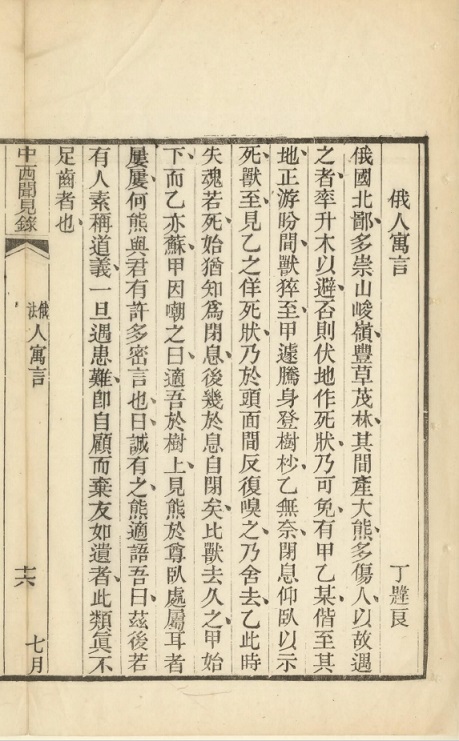 俄人寓言
丁韙良
俄國北鄙多崇山峻嶺豐草茂林其間產大熊多傷人以故遇
之者率升木以避否則伏地作死狀乃可免有甲乙某偕至其
地正游盼間獸猝至甲遽騰身登樹杪乙無奈閉息仰臥以示
死獸至見乙之佯死狀乃於頭面間反復嗅之乃舍去乙此時
失魂若死始猶知為閉息後幾於息自閉矣比獸去久之甲始
下而乙亦蘇甲因嘲之曰適吾於樹上見熊於尊臥處屬耳者
屢屢何熊與君有許多密言也曰誠有之熊適語吾曰茲後若
有人素稱道義一旦遇患難卽自顧而棄友如遺者此類眞不
足齒者也
中西聞見錄
俄法人寓言
十六
七月